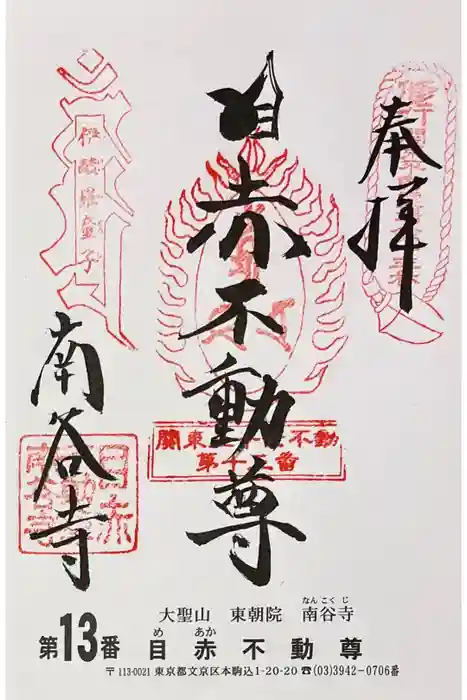 奉拝
目赤不動尊
南谷寺
關東三十六不動
第十三番
大聖山 東朝院 南谷寺
なんこくじ
第13番 目赤不動尊
め あか
〒113-0021 東京都文京区本駒込1-20-20 ☎(03)3942-0706番